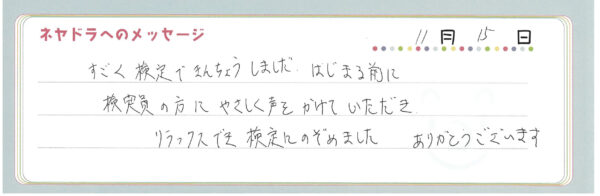 ネヤドラへのメッセージ
11月15日
すごく検定できんちょうしました。はじまる前に
検定員の方にやさしく声をかけていただき
リラックスでき検定にのぞめました ありがとうございます